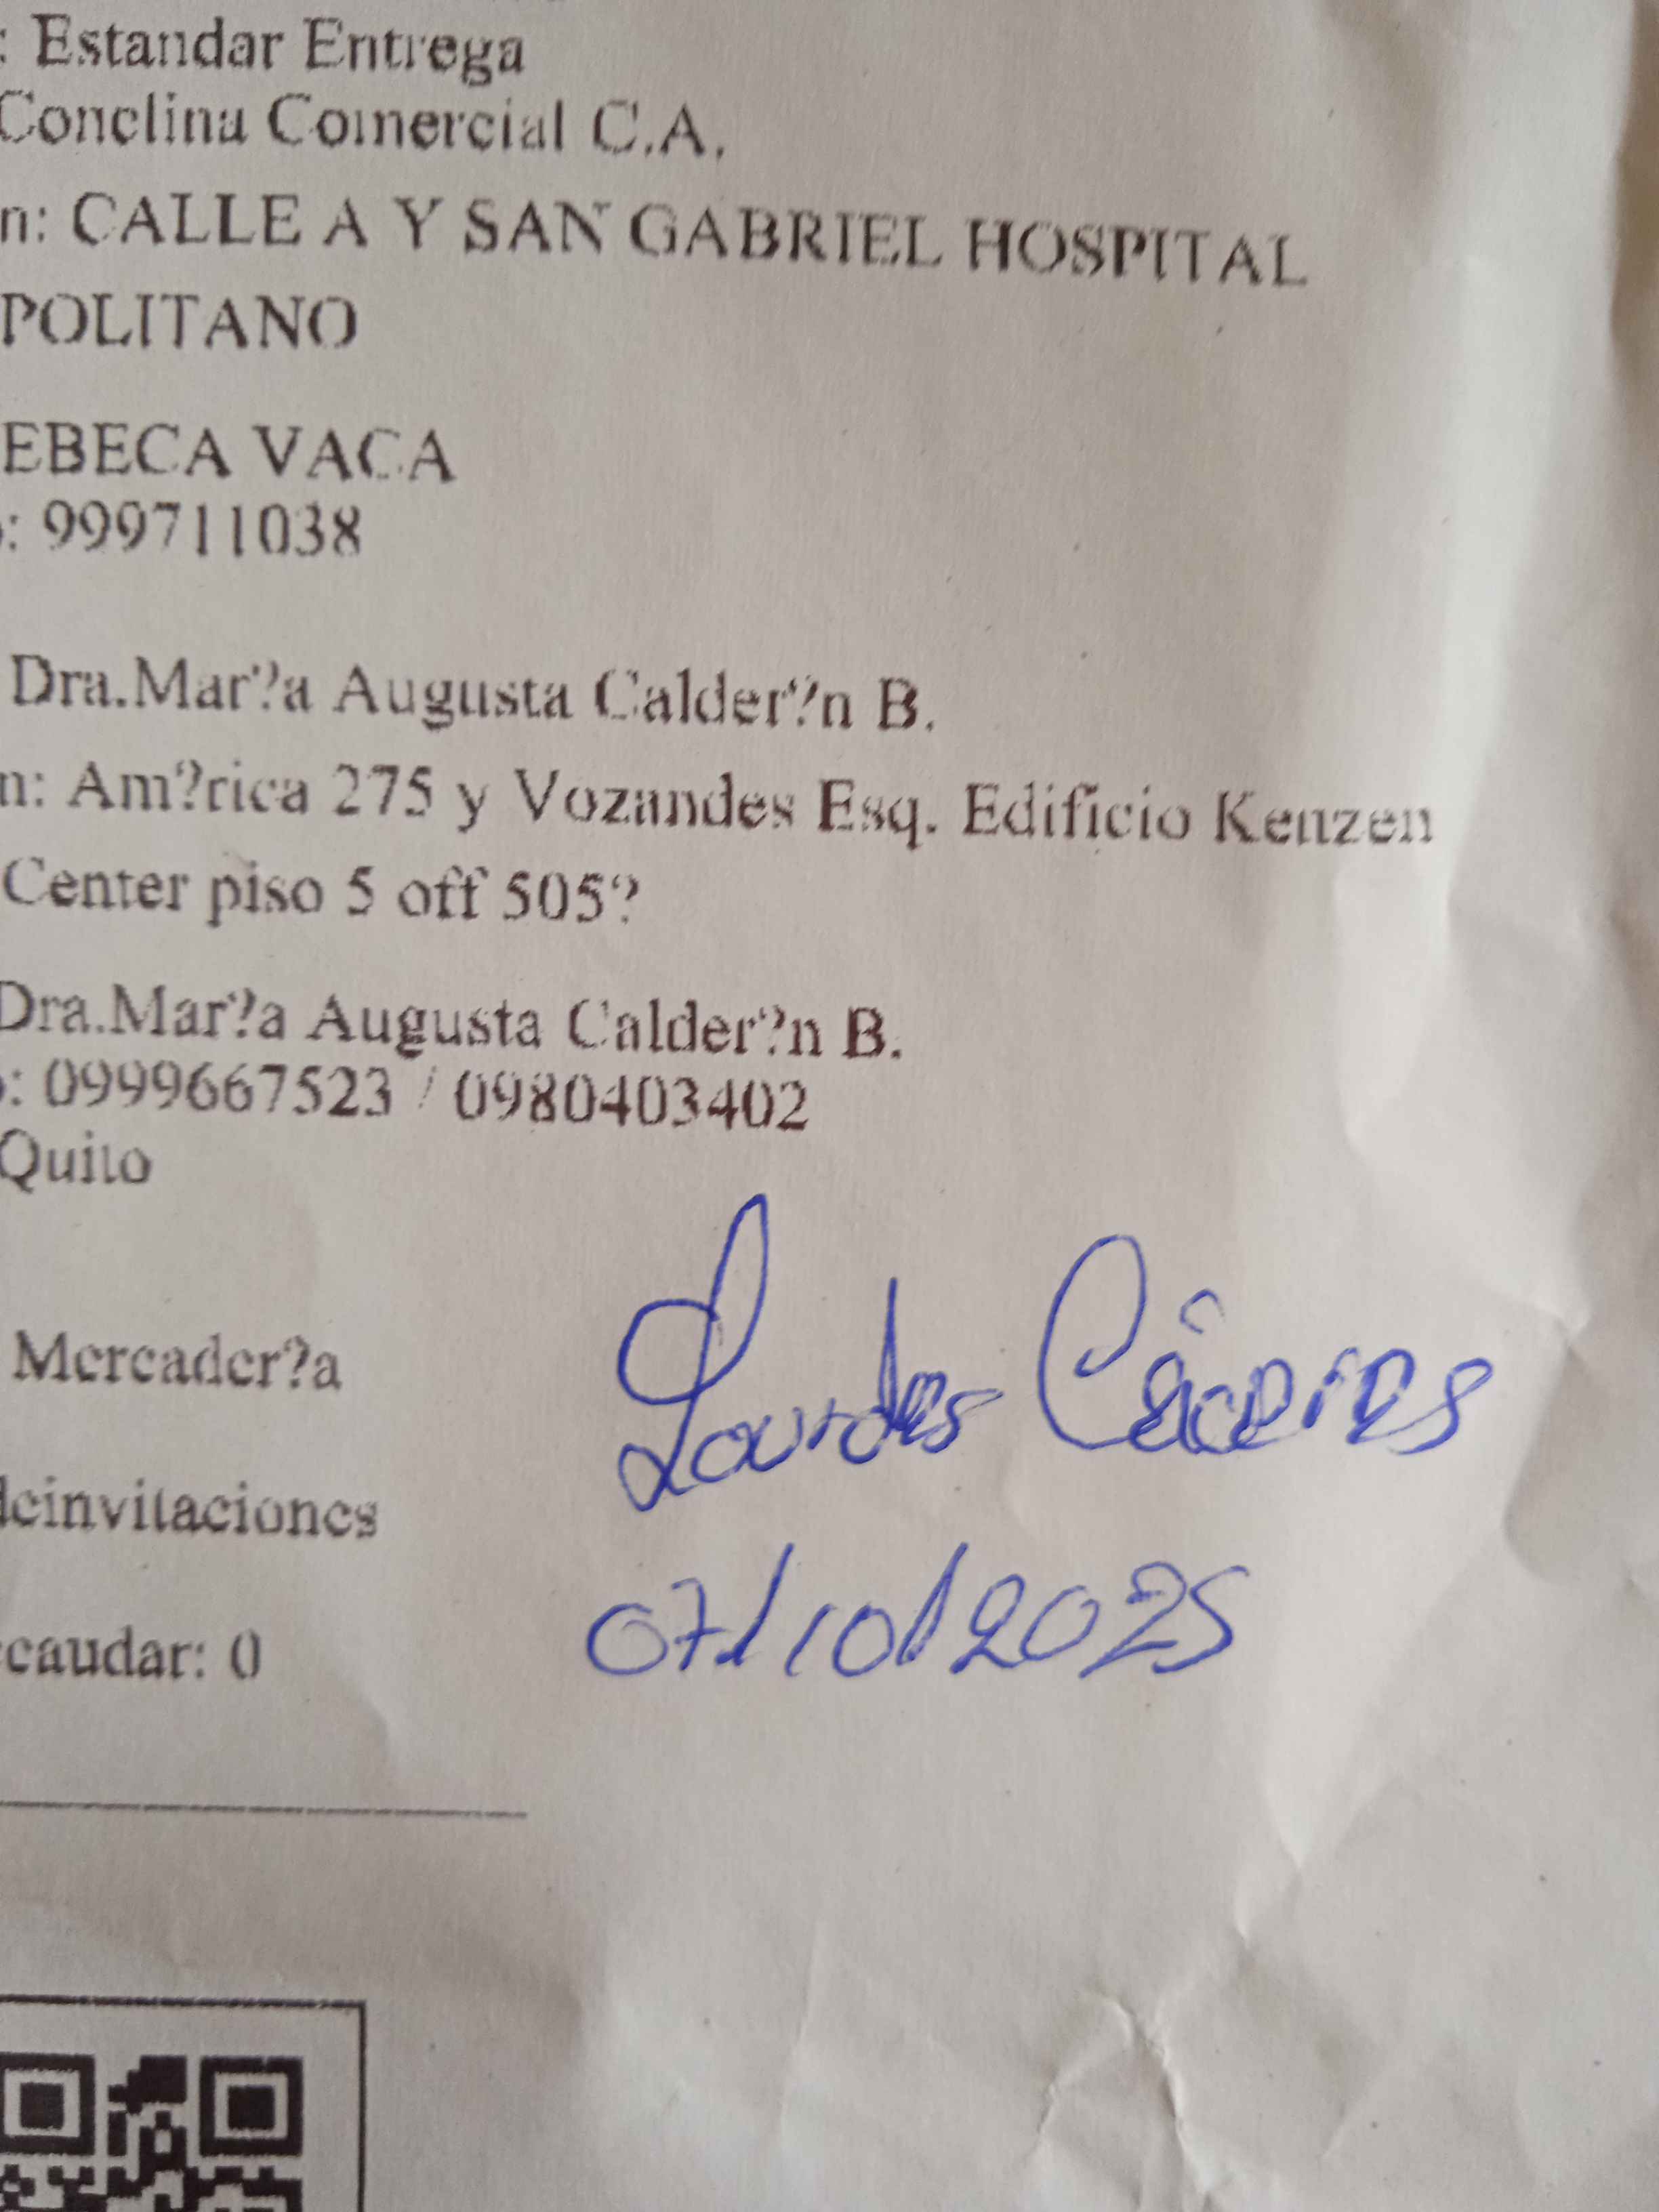 : Estandar Entrega
Conclina Comercial C.A.
n: CALLE A Y SAN GABRIEL HOSPITAL
POLITANO
EBECA VACA
: 999711038
Dra.Mar?a Augusta Calder?n B.
n: Am?rica 275 y Vozandes Esq. Edificio Kenzen
Center piso 5 off 505?
Dra.Mar?a Augusta Calder?n B.
: 0999667523 / 0980403402
Quito
Mercader?a
Lourdes Cáceres
deinvitaciones
07/10/2025
caudar: 0